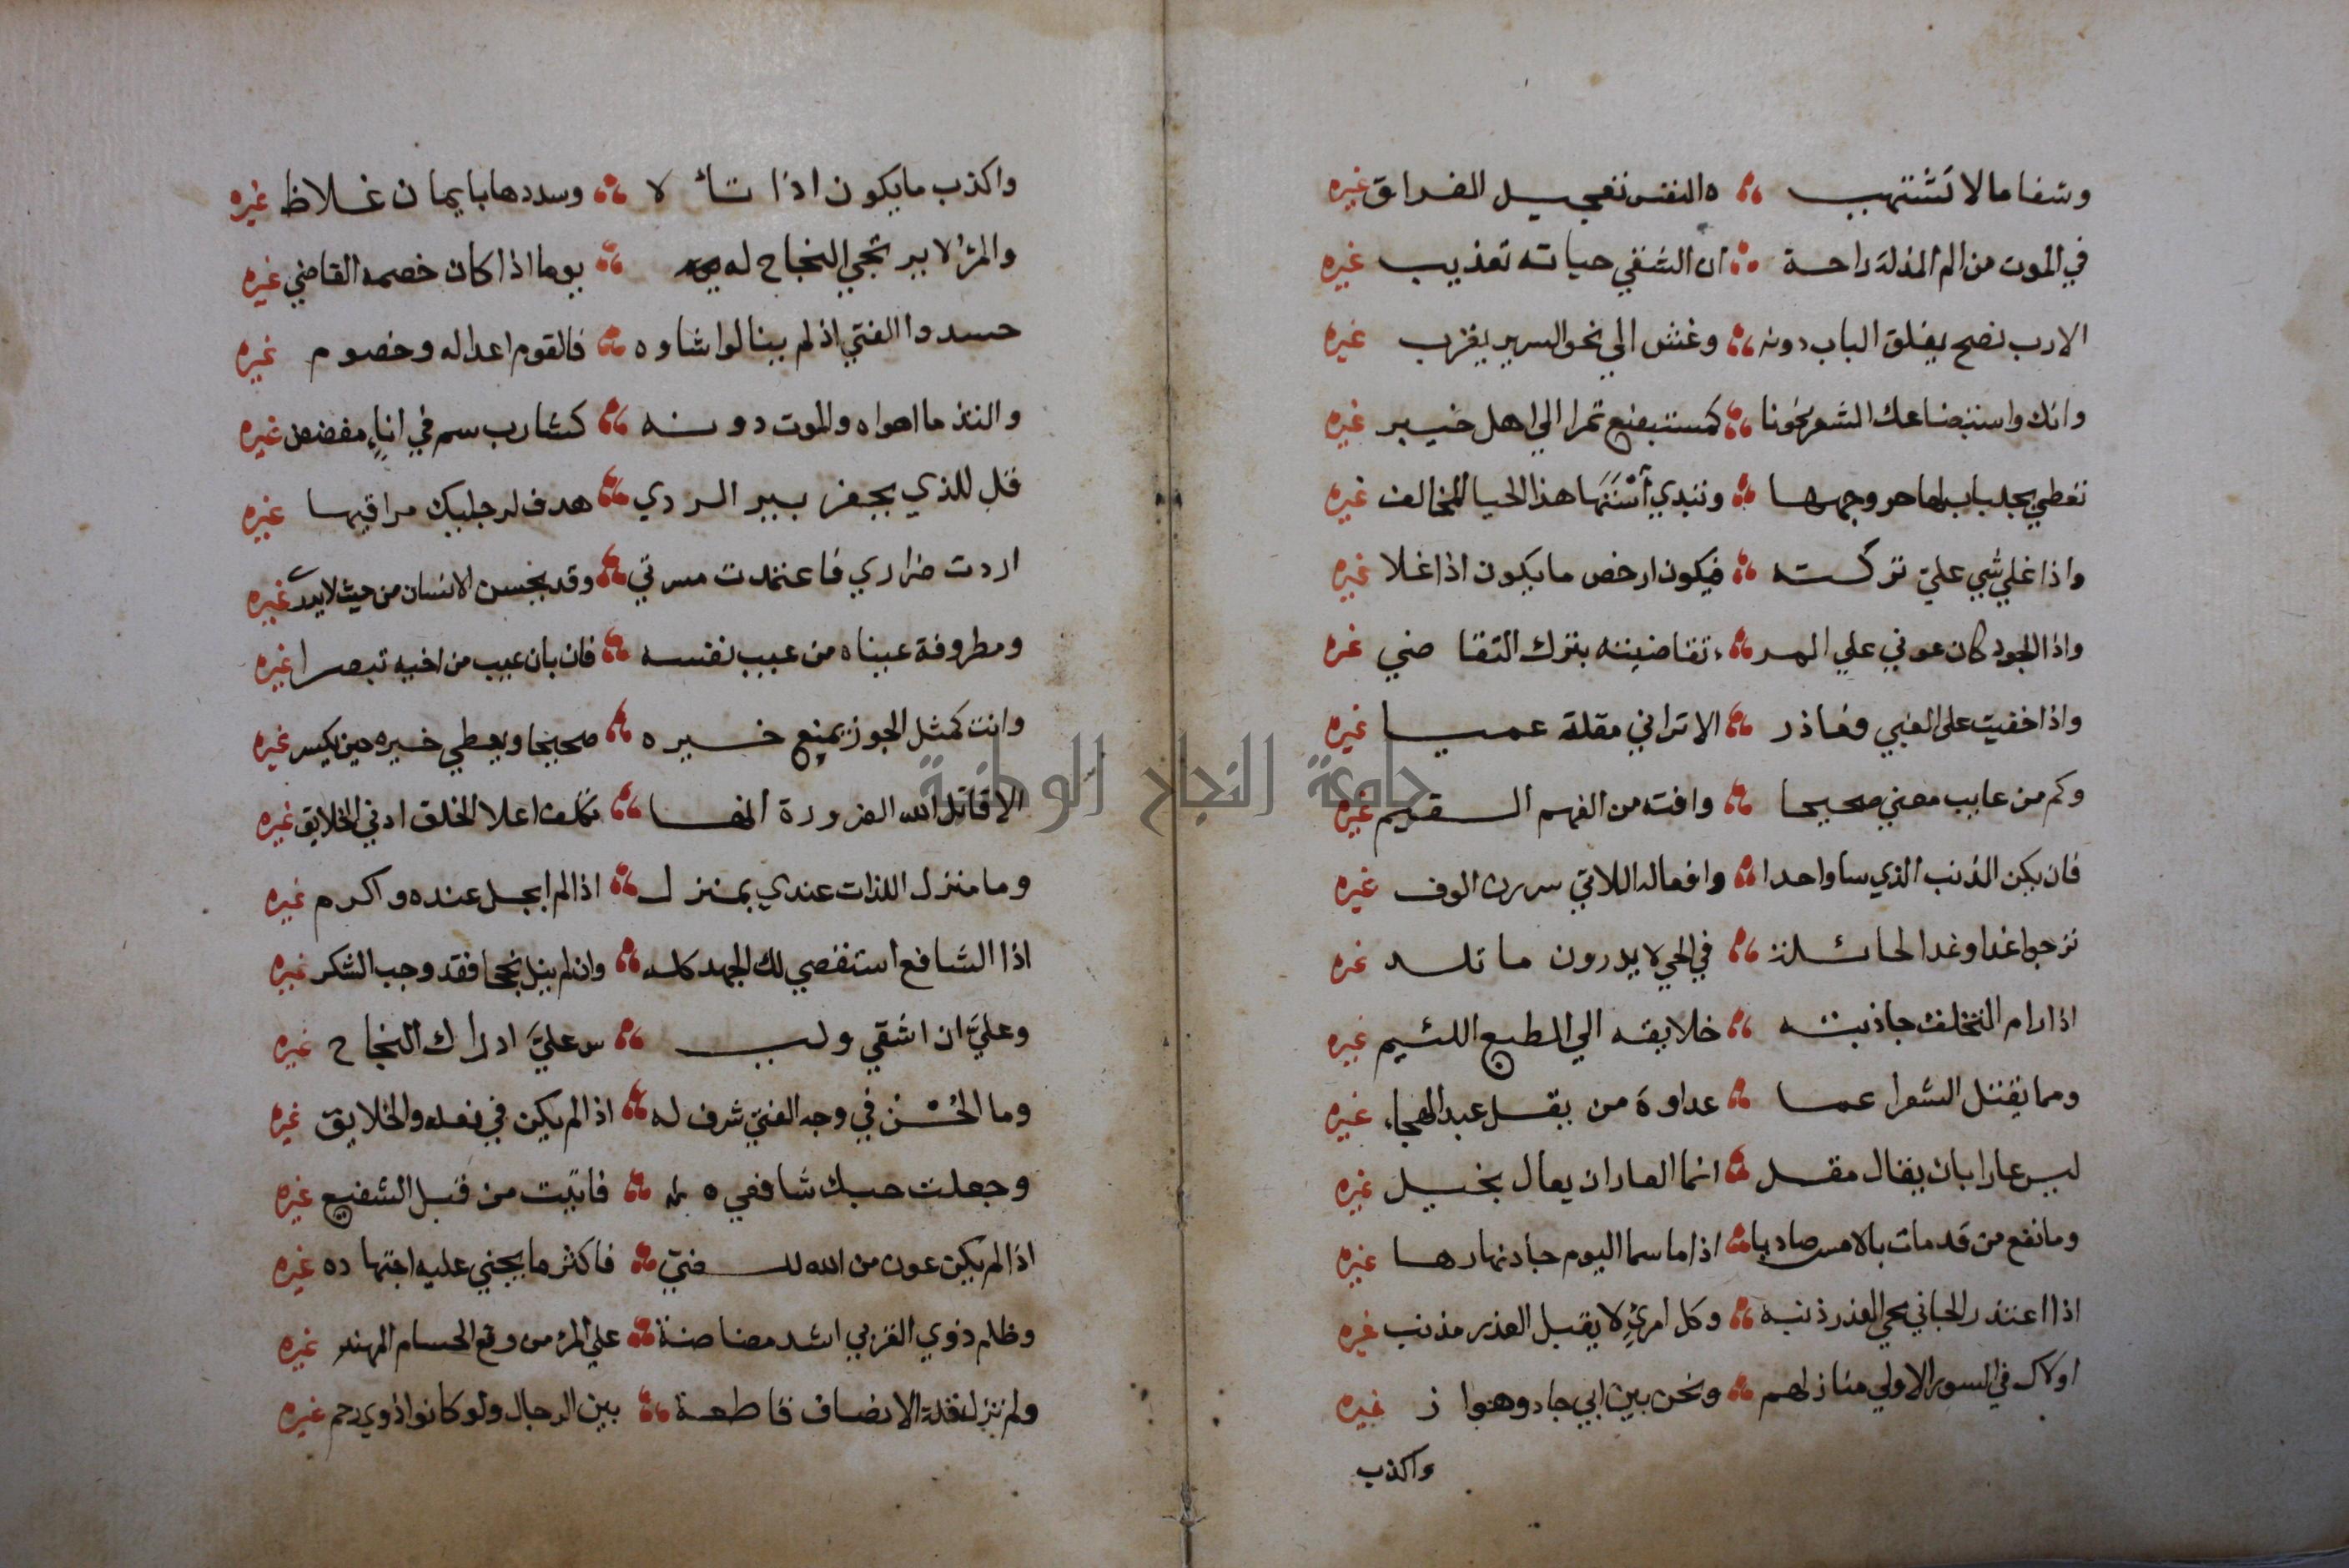 وشفا ما لا تشتهيـ ه النفس تعجيل الفراق غيره
في الموت من الم المذلة راحة ان الشقي حياته تعذيب غيره
الا رب نصح يغلق الباب دونه وغش الي نحو السرير يقرب غيره
وانك واستبضاعك الشعر نحونا كمستبضع تمرا الي اهل خيبر غيره
تغطي بجلباب لها حر وجهها وتبدي أستها هذا الحيا المخالف غيره
واذا غلي شي علي تركته فيكون ارخص ما يكون اذا غلا غيره
واذا الجود كان عوني علي المر تقاضيته بترك التقاضي غره
واذا خفيت على الغبي فعاذر الا تراني مقلة عميا غيره
وكم من عايب معني صحيحا وافته من الفهم السقيم غيره
فان يكن الذنب الذي سا واحدا وافعاله اللاتي سررن الوف غيره
نرجوا غدا وغدا لحائلة في الحي لا يدرون ما تلد غره
اذا رام التخلف جاذبته خلايقه الي الطبع اللئيم غيره
ومما يقتل الشعرا عمـا عداوة من يقل عبد الهجاء غيره
ليس عارا بان يقال مقل انما العار ان يقال بخيل غيره
وما نفع من قد مات بالامس صاديا اذا ما سما اليوم جاد نهارها غيره
اذا اعتذر الجاني محي العذر ذنبه وكل امرئ لا يقبل العذر مذنب غيره
اولاك في السور الاولي منازلهم ونحن بين ابي جاد وهوا ز غيره
واكذب
واكذب ما يكون اذا تأ لا وسددها بايمان غلاظ غيره
والمرء لا يرتجي النجاح له يوما اذا كان خصمه القاضي غيره
حسدوا الفتي اذ لم ينالوا شاوه فالقوم اعدا له وخصوم غيره
والتذ ما اهواه والموت دونه كشارب سم في اناء مفضض غيره
قل للذي يحفر بير الردي هدف لرجليك مراقيها غيره
اردت ضراري فاعتمدت مسرتي وقد يحسن الانسان من حيث لا يدر غيره
ومطروفة عيناه من عيب نفسه فان بان عيب من اخيه تبصرا غيره
وانت كمثل الجوز يمنع خيره صحيحا ويعطي خيره حين يكسر غيره
الا قاتل الله الضرورة انها تكلف اعلا الخلق ادني الخلايق غيره
وما منزل اللذات عندي بمنزل اذا لم ابجل عنده واكرم غيره
اذا الشافع استقصي لك الجهد كله وان لم ينل نجحا فقد وجب الشكر غيره
وعليَّ ان اشقي وليـ س عليَّ ادراك النجاح غيره
وما الحسن في وجه الفتي شرف له اذا لم يكن في فعله والخلايق غيره
وجعلت حبك شافعي فاتيت من قبل الشفيع غيره
اذا لم يكن عون من الله للفتي فاكثر ما يجني عليه اجتهاده غيره
وظلم ذوي القربي اشد مضاضة علي المرء من وقع الحسام المهند غيره
ولم تزل قلة الانصاف قاطعة بين الرجال ولو كانوا ذوي رحم غيره
جامعة النجاح الوطنية